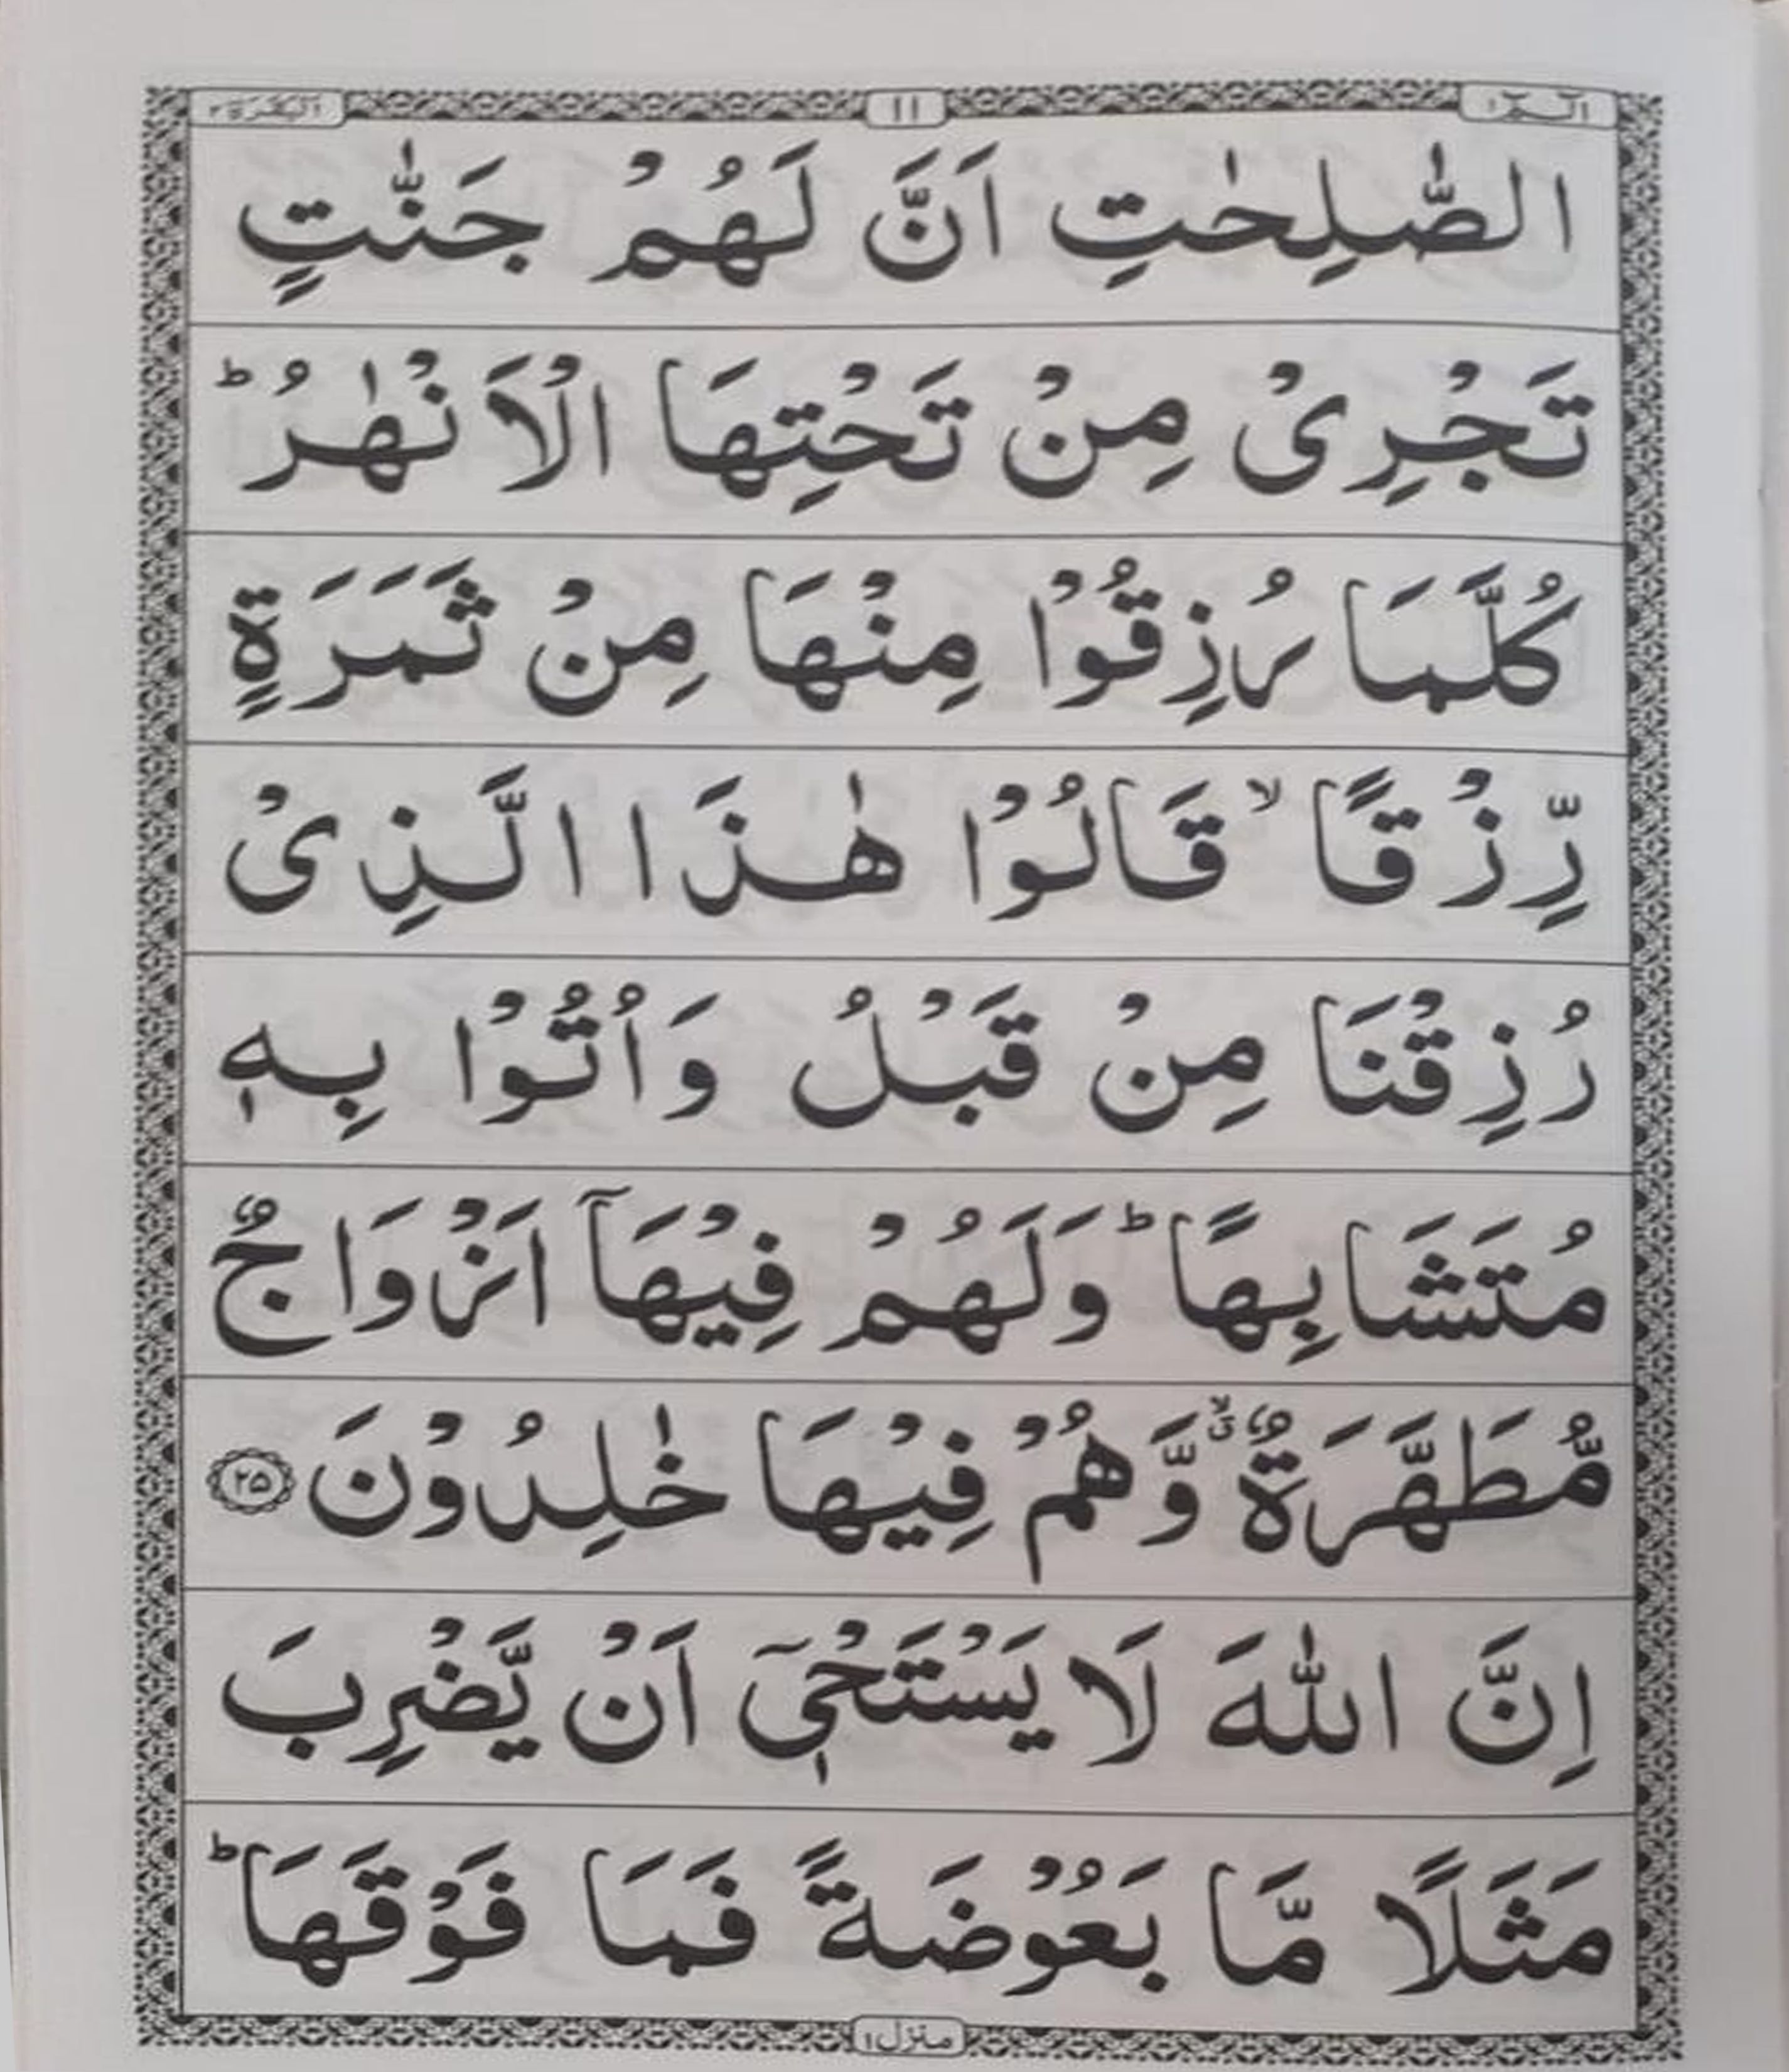 الٓمّٓ ۱ 11 البقرة ۲
الصّٰلِحٰتِ اَنَّ لَهُمْ جَنّٰتٍ
تَجْرِیْ مِنْ تَحْتِهَا الْاَنْهٰرُ ؕ
كُلَّمَا رُزِقُوْا مِنْهَا مِنْ ثَمَرَةٍ
رِّزْقًا ۙ قَالُوْا هٰذَا الَّذِیْ
رُزِقْنَا مِنْ قَبْلُ وَاُتُوْا بِهٖ
مُتَشَابِهًا ؕ وَلَهُمْ فِیْهَاۤ اَزْوَاجٌ
مُّطَهَّرَةٌ ۙۗ وَّهُمْ فِیْهَا خٰلِدُوْنَ ۲۵
اِنَّ اللّٰهَ لَا یَسْتَحْیٖۤ اَنْ یَّضْرِبَ
مَثَلًا مَّا بَعُوْضَةً فَمَا فَوْقَهَا ؕ
منزل ۱